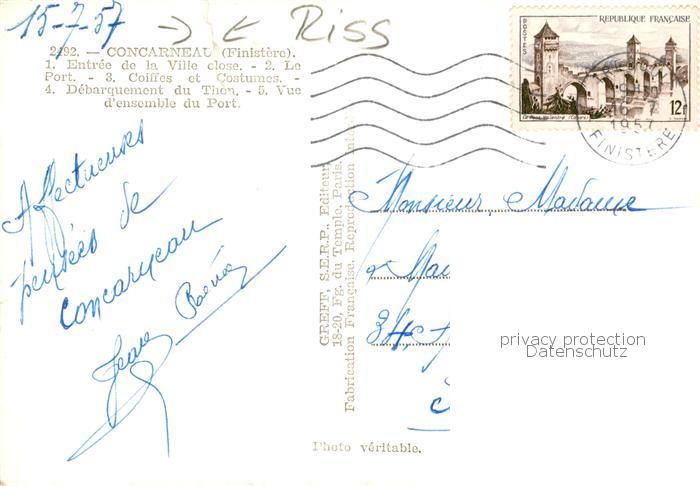 15-7-57
→ ← Riss
2492. — CONCARNEAU (Finistère).
1. Entrée de la Ville close. - 2. Le
Port. - 3. Coiffes et Costumes. -
4. Débarquement du Thon. - 5. Vue
d'ensemble du Port.
Affectueuses
pensées de
Concarneau
Jean
GREFF, S.E.R.P., Editeur
18-20, Fg. du Temple, Paris
Fabrication Française. Reproduction
Photo véritable.
POSTES
REPUBLIQUE FRANÇAISE
12F
1957
FINISTÈRE
Monsieur, Madame
34,
privacy protection
Datenschutz